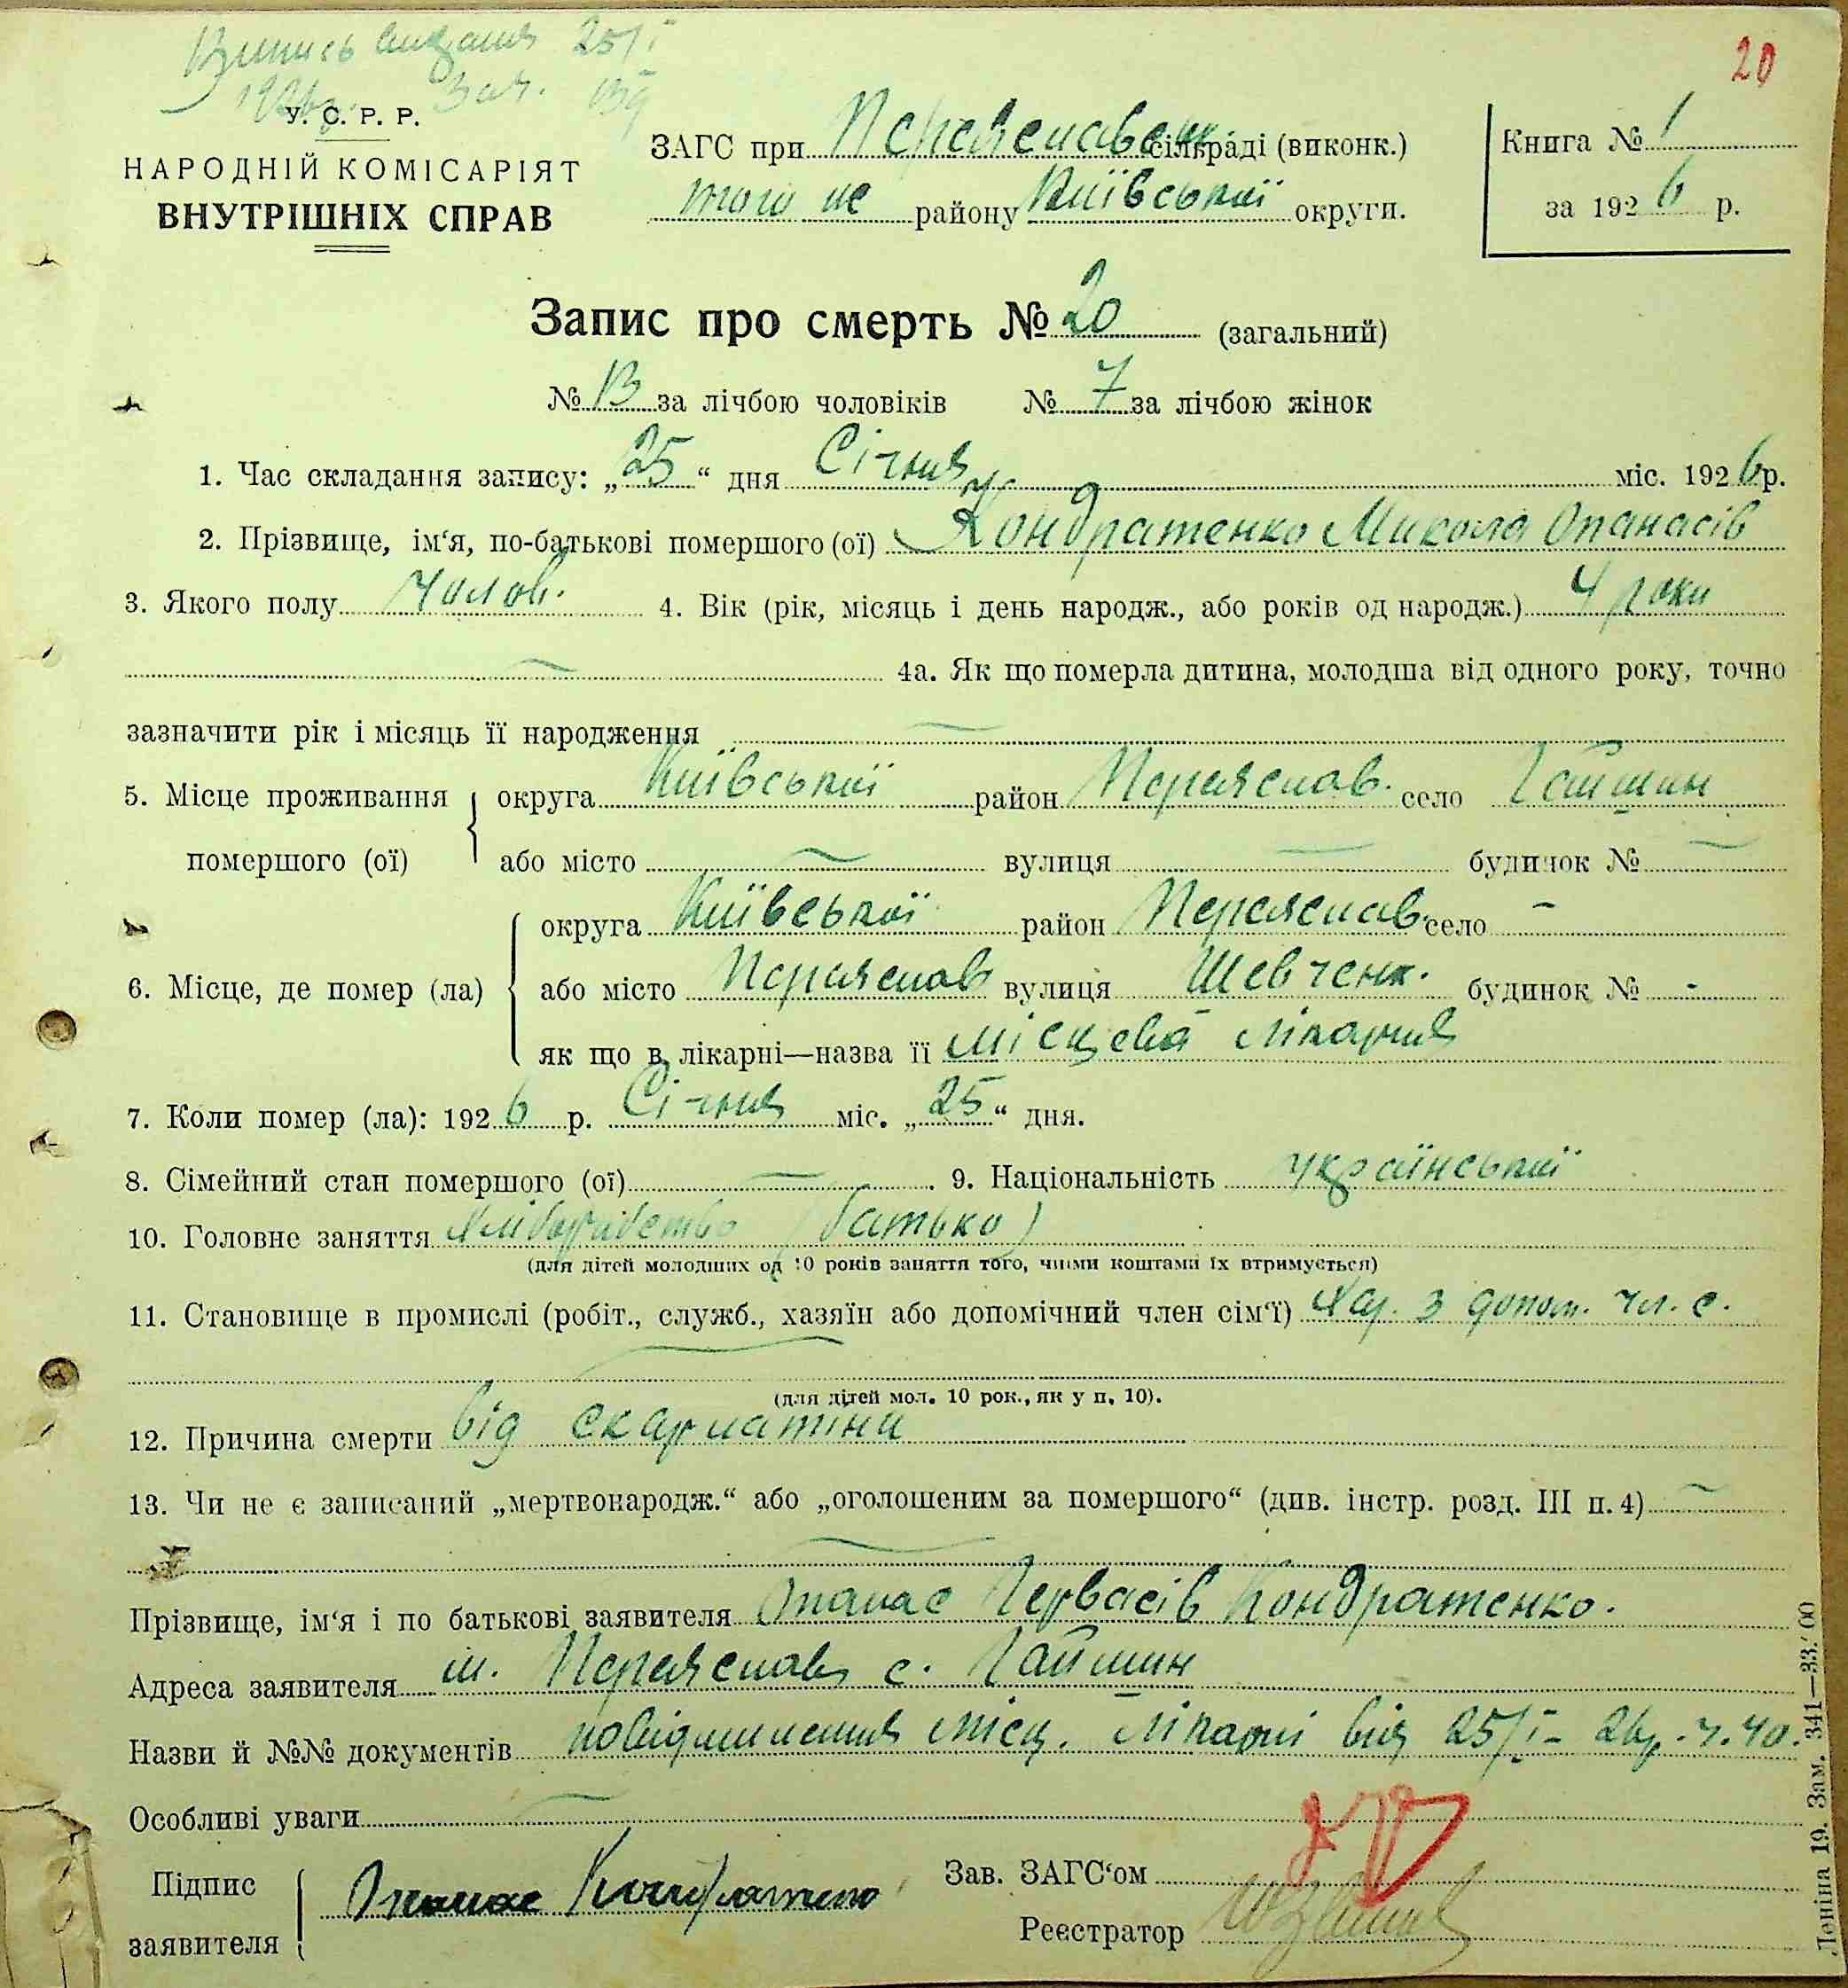 Випись видана 25/I
1926р. Зач. 139
20
У. С. Р. Р.
НАРОДНІЙ КОМІСАРІЯТ
ВНУТРІШНІХ СПРАВ
ЗАГС при Переяславськ сільраді (виконк.)
того же району Київської округи.
Книга № 1
за 1926 р.
Запис про смерть № 20 (загальний)
№ 13 за лічбою чоловіків № 7 за лічбою жінок
1. Час складання запису: „25“ дня Січня міс. 1926 р.
2. Прізвище, ім‘я, по-батькові помершого (ої) Кондратенко Микола Опанасів
3. Якого полу чолов. 4. Вік (рік, місяць і день народж., або років од народж.) 4 роки
— 4а. Як що померла дитина, молодша від одного року, точно
зазначити рік і місяць її народження —
5. Місце проживання помершого (ої) округа Київської район Переяслав. село Гайшин
або місто — вулиця — будинок № —
6. Місце, де помер (ла) округа Київської район Переяслав. село -
або місто Переяслав вулиця Шевченк. будинок № -
як що в лікарні—назва її місцева лікарня
7. Коли помер (ла): 1926 р. Січня міс. „25“ дня.
8. Сімейний стан помершого (ої) — . 9. Національність української
10. Головне заняття хліборобство (батько)
(для дітей молодших од 10 років заняття того, чиїми коштами їх втримується)
11. Становище в промислі (робіт., служб., хазяїн або допомічний член сім‘ї) Хаз. з допом. чл. с.
—
(для дітей мол. 10 рок., як у п. 10).
12. Причина смерти від скарлатіни
13. Чи не є записаний „мертвонародж.“ або „оголошеним за помершого“ (див. інстр. розд. III п. 4) —
—
Прізвище, ім‘я і по батькові заявителя Опанас Гервасів Кондратенко.
Адреса заявителя м. Переяслав, с. Гайшин
Назви й №№ документів повідомлення місц. лікарні від 25/I - 26р. ч. 40.
Особливі уваги —
Підпис заявителя Опанас Кондратенко
Зав. ЗАГС‘ом
Реєстратор
Леніна 19. Зам. 341—33.000